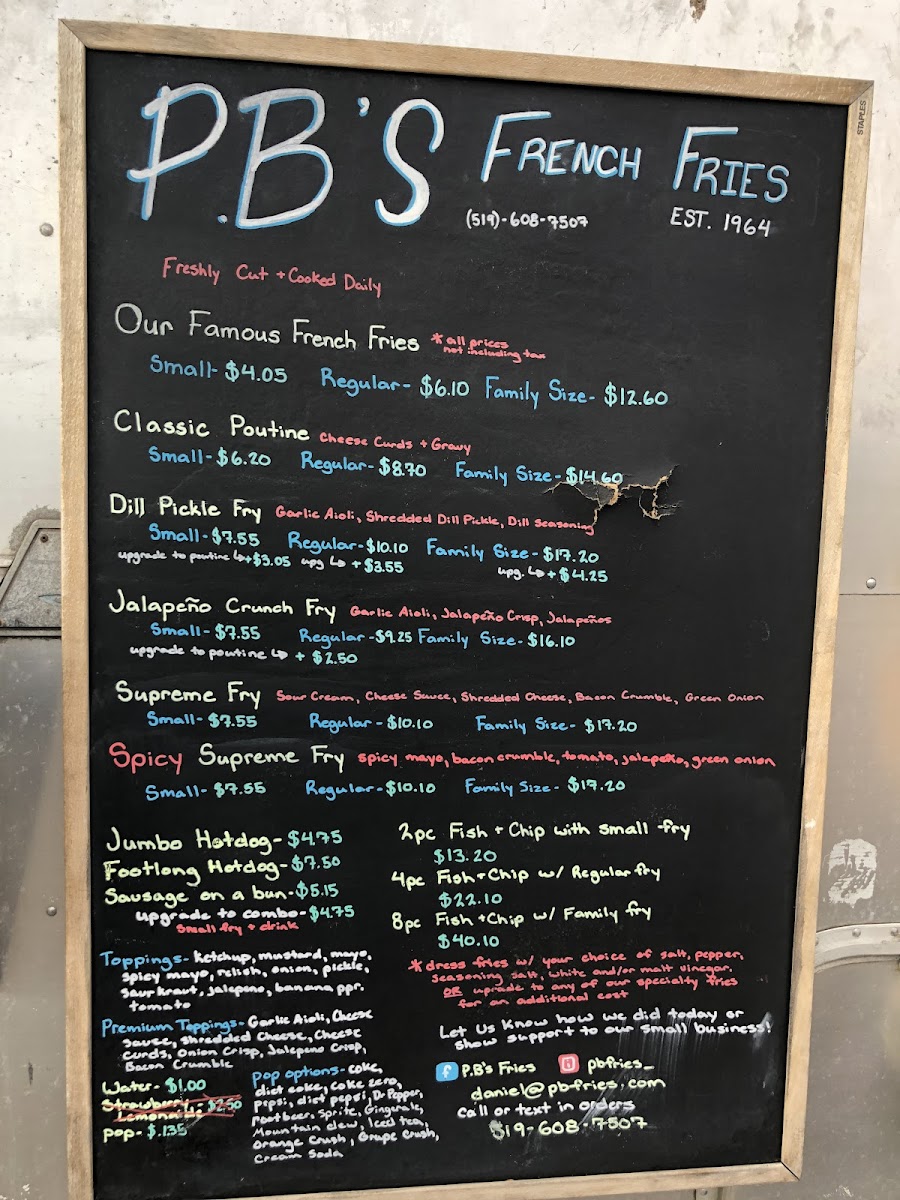 P.B'S FRENCH FRIES
(519)-608-7507 EST. 1964
STAPLES
Freshly Cut + Cooked Daily
Our Famous French Fries *all prices
not including tax
Small- $4.05 Regular- $6.10 Family Size- $12.60
Classic Poutine Cheese Curds + Gravy
Small- $6.20 Regular- $8.70 Family Size- $14.60
Dill Pickle Fry Garlic Aioli, Shredded Dill Pickle, Dill Seasoning
Small- $7.55 Regular- $10.10 Family Size- $17.20
upgrade to poutine ↳+$3.05 upg ↳ + $3.55 upg. ↳ + $4.25
Jalapeño Crunch Fry Garlic Aioli, Jalapeño Crisp, Jalapeños
Small- $7.55 Regular- $9.25 Family Size- $16.10
upgrade to poutine ↳ + $2.50
Supreme Fry Sour Cream, Cheese Sauce, Shredded Cheese, Bacon Crumble, Green Onion
Small- $7.55 Regular- $10.10 Family Size- $17.20
Spicy Supreme Fry spicy mayo, bacon crumble, tomato, jalapeño, green onion
Small- $7.55 Regular- $10.10 Family Size- $17.20
Jumbo Hotdog- $4.75
Footlong Hotdog- $7.50
Sausage on a bun- $5.15
upgrade to combo- $4.75
small fry + drink
Toppings- ketchup, mustard, mayo,
spicy mayo, relish, onion, pickle,
saurkraut, jalepeno, banana ppr.
tomato
Premium Toppings- Garlic Aioli, Cheese
Sauce, Shredded Cheese, Cheese
Curds, Onion Crisp, Jalepeno Crisp,
Bacon Crumble
Water- $1.00
Strawberry - $2.50
Lemonade
pop- $.135
pop options- coke,
diet coke, coke zero,
pepsi, diet pepsi, Dr Pepper,
Rootbeer, Sprite, Gingerale,
Mountain dew, Iced tea,
orange crush, Grape crush,
cream soda
2pc Fish + Chip with small fry
$13.20
4pc Fish + Chip w/ Regular fry
$22.10
8pc Fish + Chip w/ Family fry
$40.10
*dress fries w/ your choice of salt, pepper,
seasoning salt, white and/or malt vinegar.
OR uprade to any of our specialty fries
for an additional cost
Let Us Know how we did today or
show support to our small business!
f P.B's Fries pbfries_
daniel@pbfries.com
call or text in orders
519-608-7507